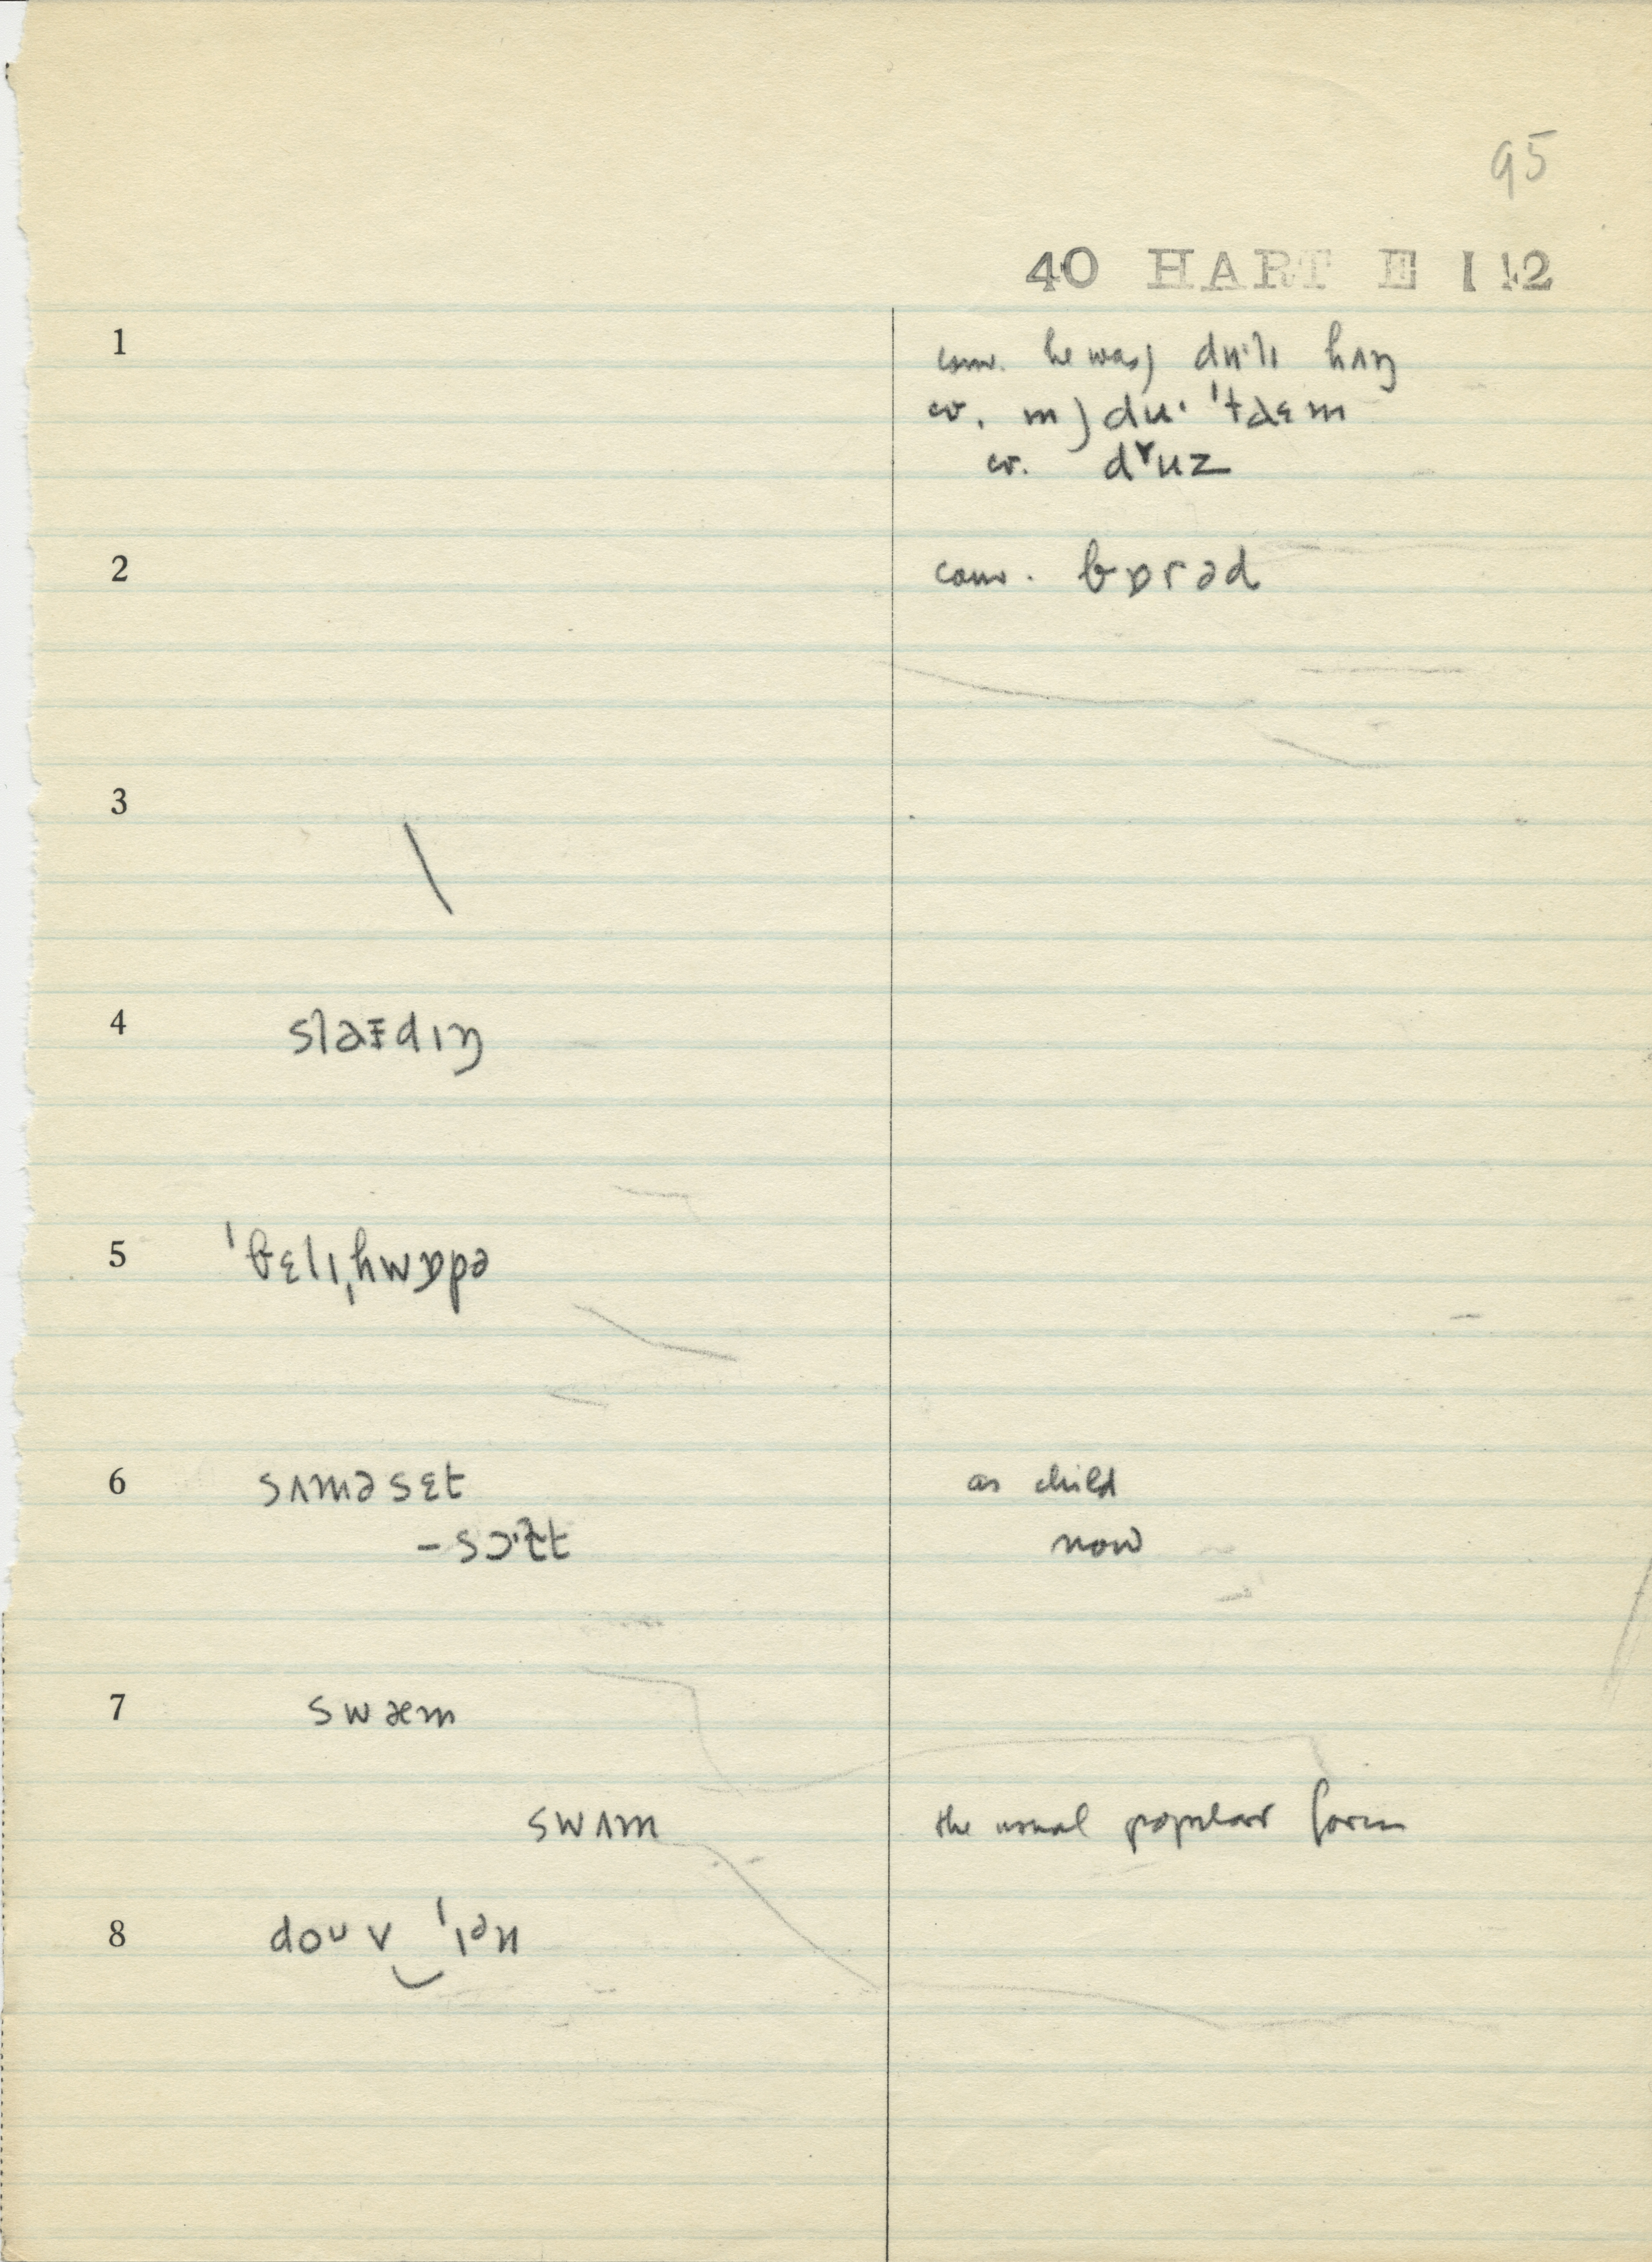 95
40 HART E 112
1 conv. he was) du·lɪ hʌŋ
cv. m) du· ˈtaɛm
cv. dʳuz
2 conv. bɒrəd
3 \
4 slaɪdɪŋ
5 ˈbɛlɪˌhwɒpə
6 sʌməsɛt as child
-sɔ·ɫt now
7 swæm
swʌm the usual popular form
8 doʊv ˈɪən